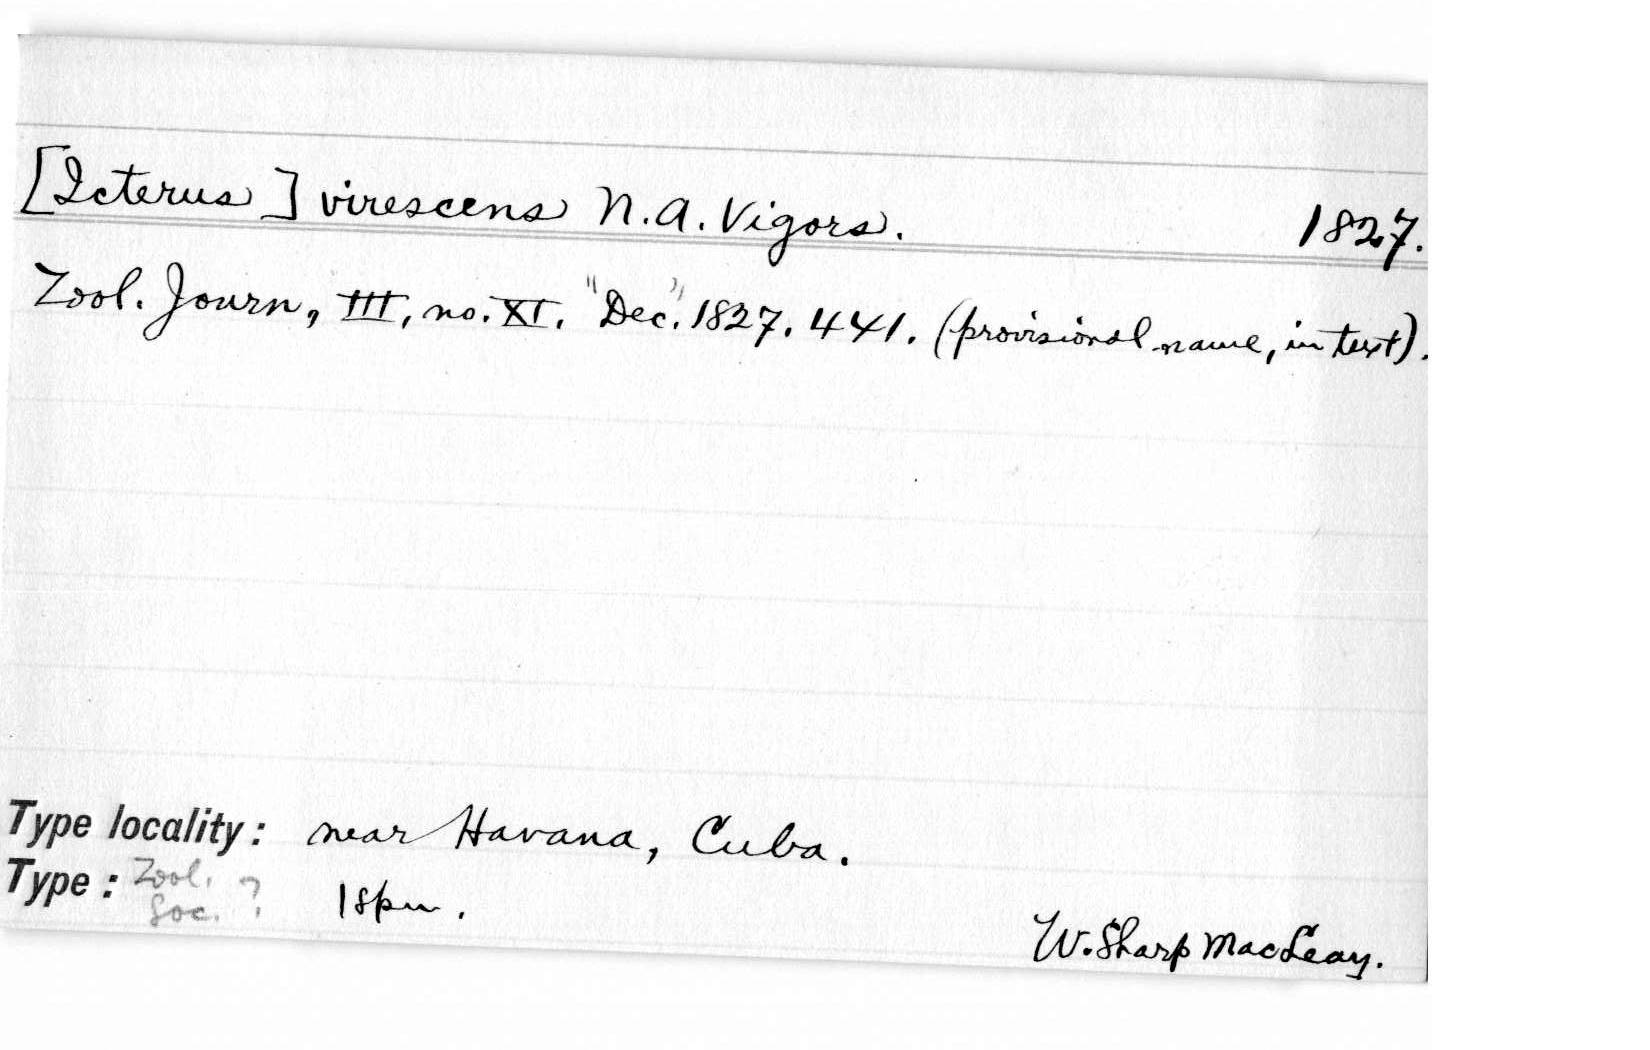 [Icterus] virescens N.A. Vigors. 1827.
Zool. Journ, III, no. XI. "Dec." 1827. 441. (provisional name, in text).
Type locality: near Havana, Cuba.
Type: Zool. Soc. ? 1 spm.
W. Sharp MacLeay.